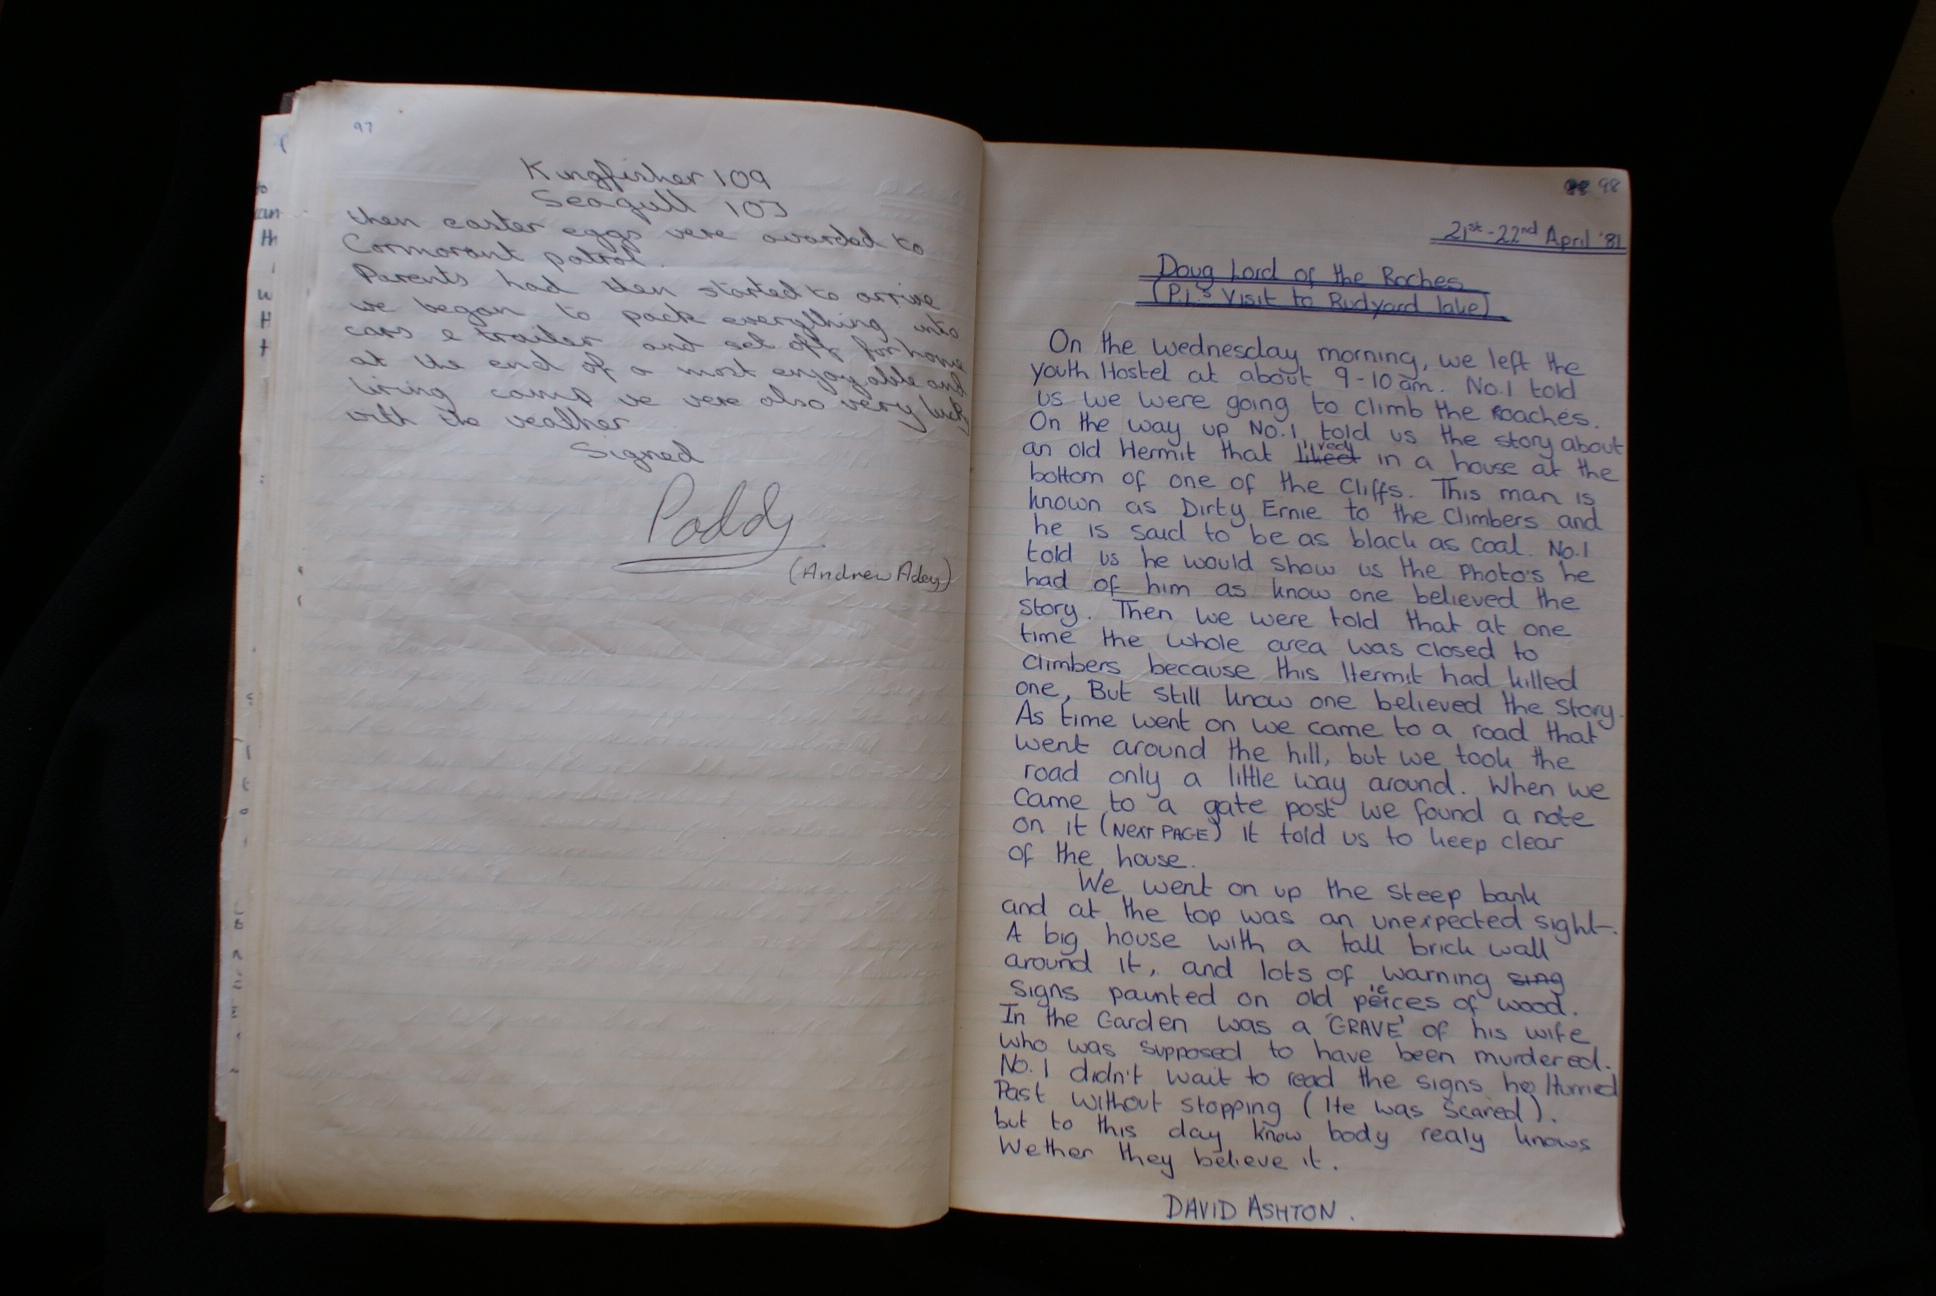 97
Kingfisher 109
Seagull 103
then easter eggs were awarded to
Cormorant patrol.
Parents had then started to arrive
we began to pack everything into
cars & trailer and set off for home
at the end of a most enjoyable and
tiring camp we were also very lucky
with the weather
Signed
Paddy
(Andrew Adey)
98
21st-22nd April '81
Doug Lord of the Roches
(P.L.'s Visit to Rudyard lake)
On the Wednesday morning, we left the
youth Hostel at about 9-10am. No.1 told
us we were going to climb the Roaches.
On the way up No.1 told us the story about
an old Hermit that lived in a house at the
bottom of one of the Cliffs. This man is
known as Dirty Ernie to the Climbers and
he is said to be as black as coal. No.1
told us he would show us the Photo's he
had of him as know one believed the
story. Then we were told that at one
time the whole area was closed to
climbers because this Hermit had killed
one, But still know one believed the story.
As time went on we came to a road that
went around the hill, but we took the
road only a little way around. When we
came to a gate post we found a note
on it (NEXT PAGE) it told us to keep clear
of the house.
We went on up the steep bank
and at the top was an unexpected sight.
A big house with a tall brick wall
around it, and lots of warning sing
signs painted on old peices of wood.
In the Garden was a 'GRAVE' of his wife
who was supposed to have been murdered.
No.1 didn't wait to read the signs he Hurried
Past without stopping (He was Scared).
but to this day know body realy knows
Wether they believe it.
DAVID ASHTON.